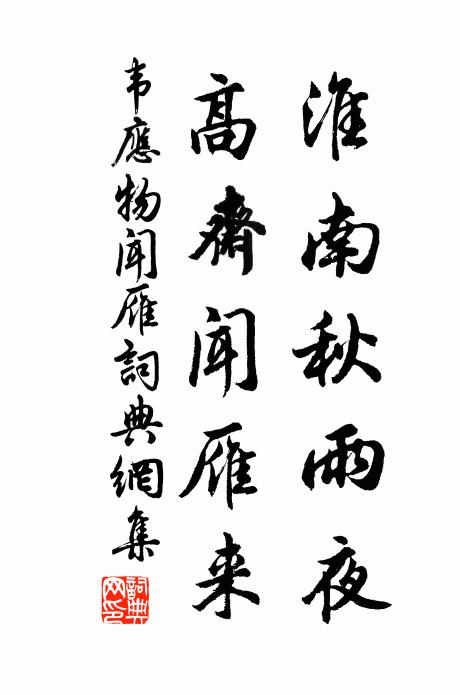 淮南秋雨夜
高齋聞雁来
韦應物聞雁詞典網集
詞典网印